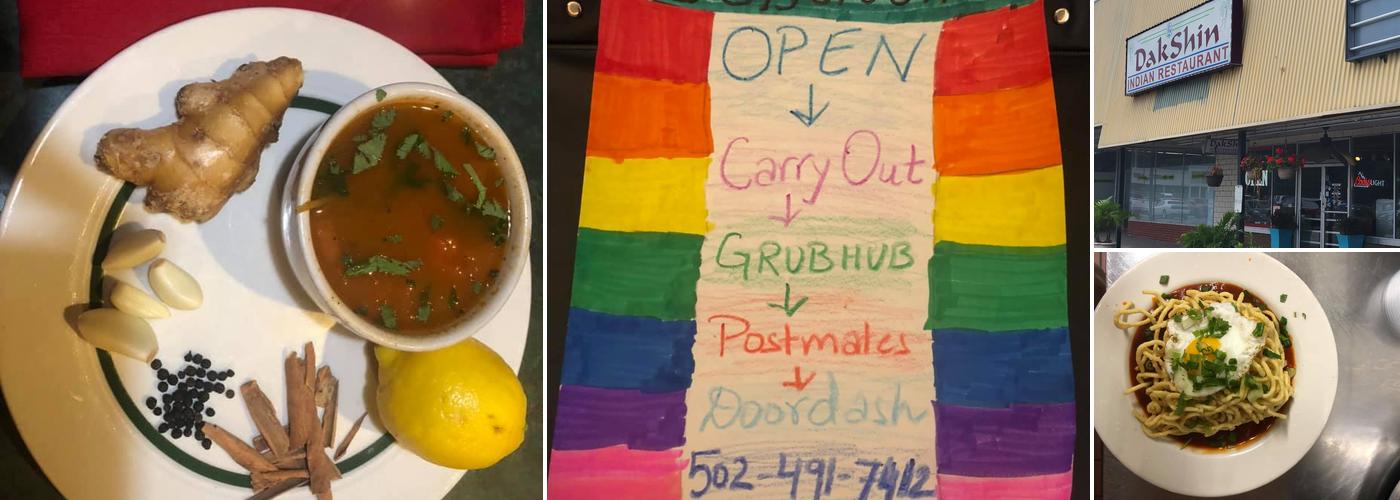 OPEN
Carry Out
GRUBHUB
Postmates
Doordash
502-491-7412
DakShin
INDIAN RESTAURANT